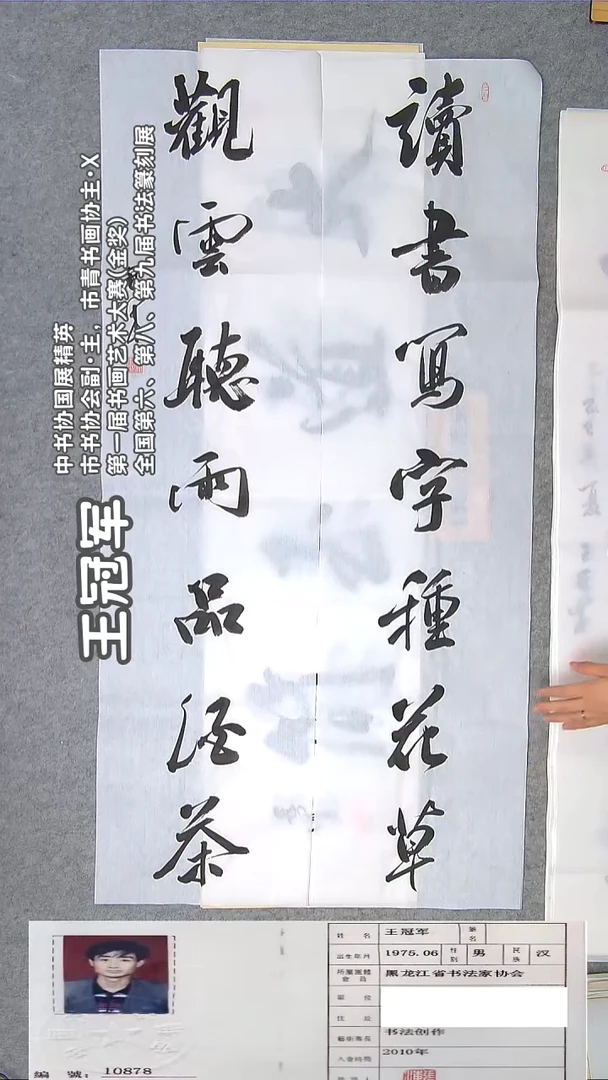 讀書寫字種花草
觀雲聽雨品酒茶
中书协国展精英
市书协会副·主，市青书画协主·X
第一届书画艺术大赛(金奖)
全国第六、第八、第九届书法篆刻展
王冠军
姓 名 王冠军 筆名
出生年月 1975.06 性别 男 民族 汉
所屬團體會員 黑龙江省书法家协会
單 位
住 址
藝術專長 书法创作
入會時間 2010年
編 號: 10878